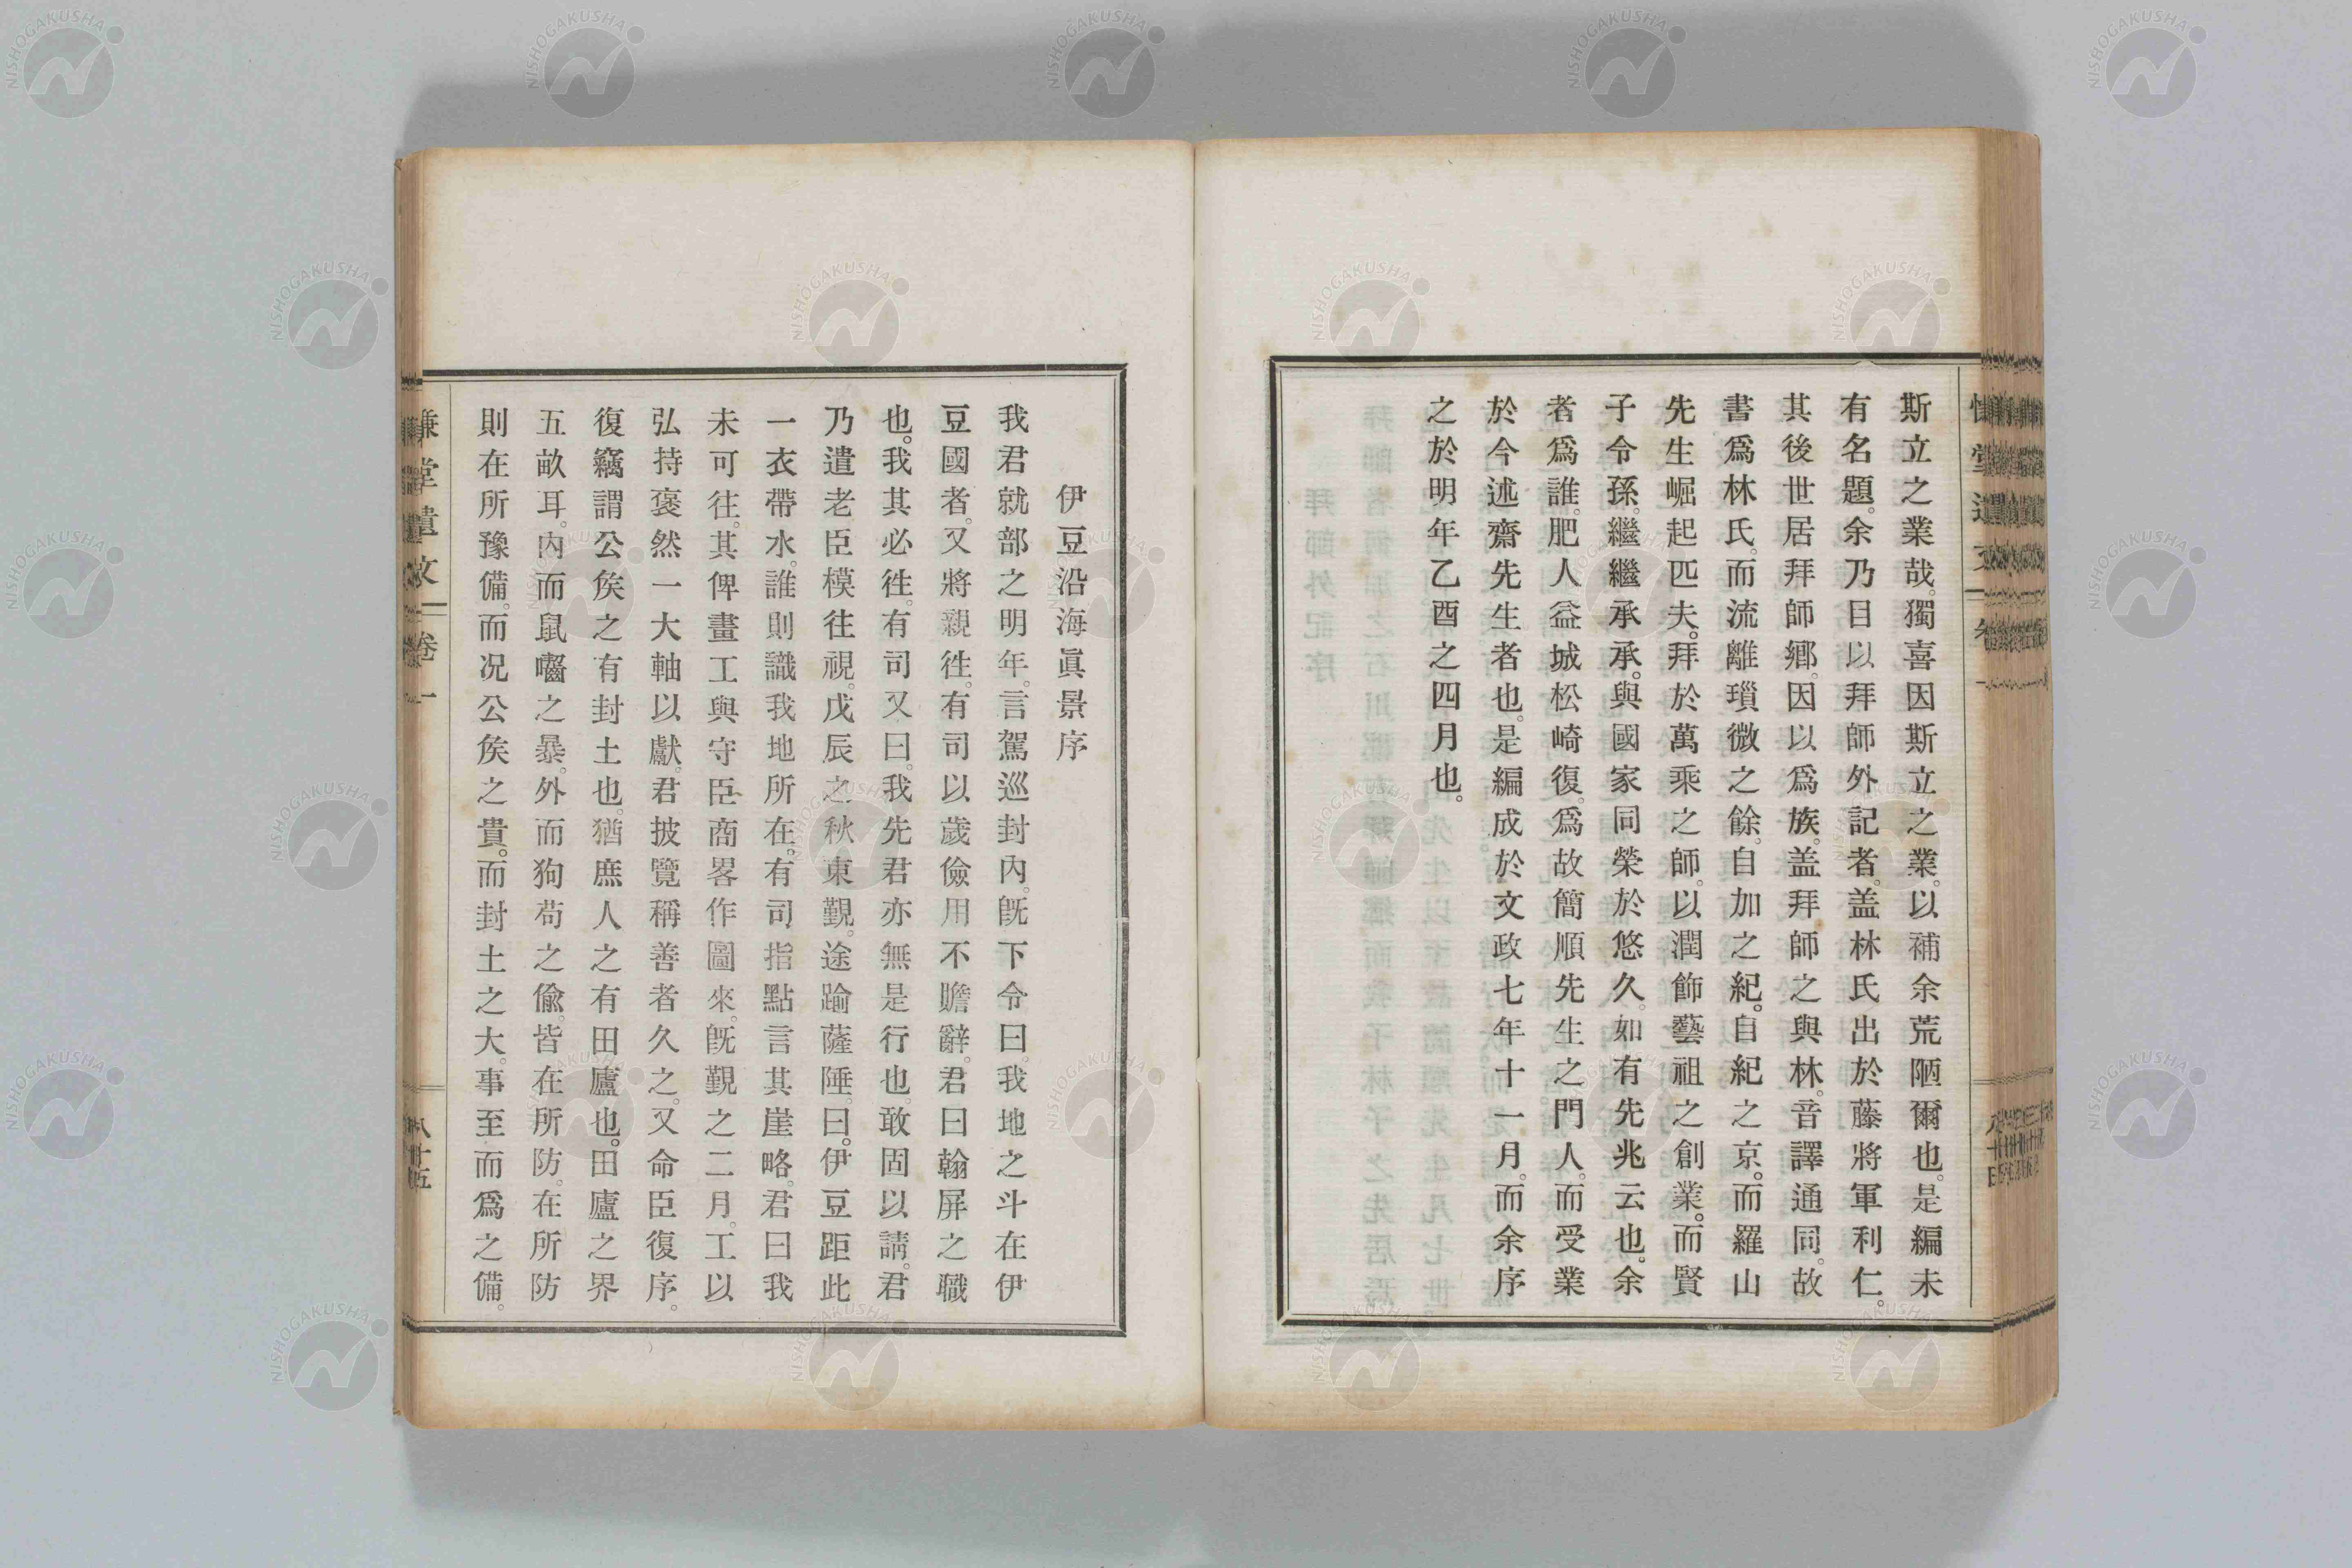 斯立之業哉。獨喜因斯立之業。以補余荒陋爾也。是編未
有名題。余乃目以拜師外記者。盖林氏出於藤將軍利仁。
其後世居拜師鄉。因以爲族。盖拜師之與林。音譯通同。故
書爲林氏。而流離瑣微之餘。自加之紀。自紀之京。而羅山
先生崛起匹夫。拜於萬乘之師。以潤飾藝祖之創業。而賢
子令孫。繼繼承承。與國家同榮於悠久。如有先兆云也。余
者爲誰。肥人益城松崎復。爲故簡順先生之門人。而受業
於今述齋先生者也。是編成於文政七年十一月。而余序
之於明年乙酉之四月也。
伊豆沿海眞景序
我君就部之明年。言駕巡封內。旣下令曰。我地之斗在伊
豆國者。又將親徃。有司以歲儉用不贍辭。君曰翰屏之職
也。我其必徃。有司又曰。我先君亦無是行也。敢固以請。君
乃遣老臣模往視。戊辰之秋東覲。途踰薩陲。曰。伊豆距此
一衣帶水。誰則識我地所在。有司指點言其崖略。君曰我
未可往。其俾畫工與守臣商畧作圖來。旣覲之二月。工以
弘持褒然一大軸以獻。君披覽稱善者久之。又命臣復序。
復竊謂公矦之有封土也。猶庶人之有田廬也。田廬之界
五畝耳。內而鼠嚙之暴。外而狗苟之偸。皆在所防。在所防
則在所豫備。而况公矦之貴。而封土之大。事至而爲之備。
慊堂遺文 卷一
八十五
NISHOGAKUSHA